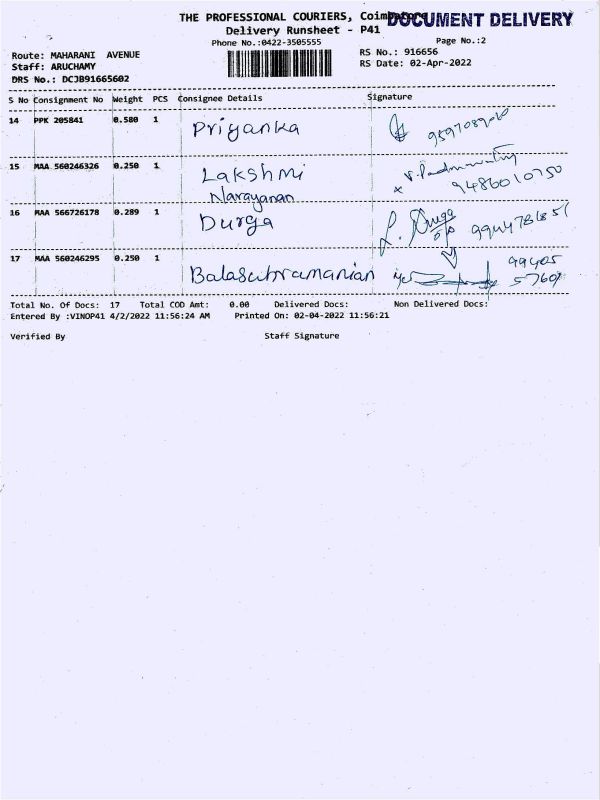 THE PROFESSIONAL COURIERS, Coimbatore
DOCUMENT DELIVERY
Delivery Runsheet - P41
Phone No.:0422-3505555
Page No.:2
Route: MAHARANI AVENUE
RS No.: 916656
Staff: ARUCHAMY
RS Date: 02-Apr-2022
DRS No.: DCJB91665602
S No Consignment No Weight PCS Consignee Details Signature
14 PPK 205841 0.580 1 Priyanka
15 MAA 560246326 0.250 1 Lakshmi
Narayanan
9486010750
16 MAA 566726178 0.289 1 Durga
17 MAA 560246295 0.250 1 Balasubramanian
Total No. Of Docs: 17 Total COD Amt: 0.00 Delivered Docs: Non Delivered Docs:
Entered By :VINOP41 4/2/2022 11:56:24 AM Printed On: 02-04-2022 11:56:21
Verified By Staff Signature